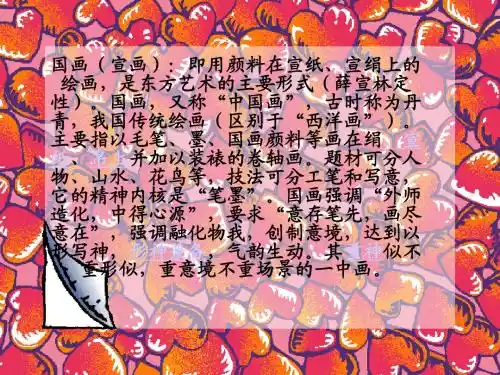 国画(宣画):即用颜料在宣纸、宣绢上的
绘画,是东方艺术的主要形式(薛宣林定
性)。国画,又称“中国画”,古时称为丹
青,我国传统绘画(区别于“西洋画”)。
主要指以毛笔、墨、国画颜料等画在绢
、 、 并加以装裱的卷轴画,题材可分人
物、山水、花鸟等,技法可分工笔和写意,
它的精神内核是“笔墨”。国画强调“外师
造化,中得心源”,要求“意存笔先,画尽
意在”,强调融化物我,创制意境,达到以
形写神, ,气韵生动。其 似不
重形似,重意境不重场景的一中画。